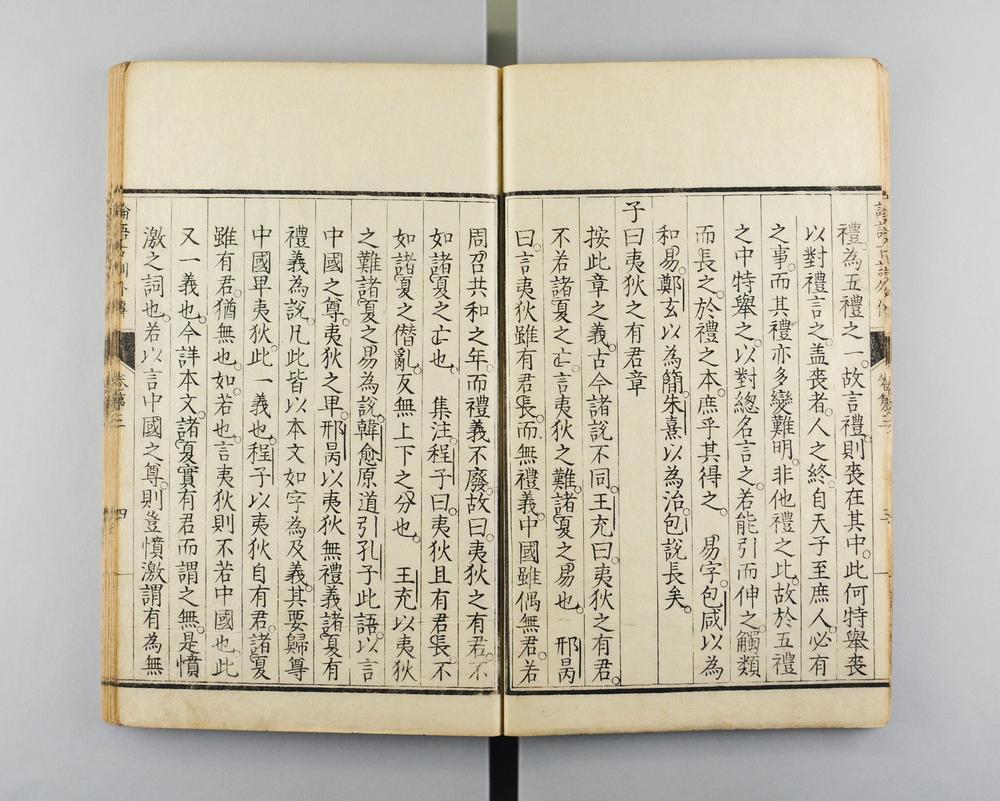 禮。為五禮之一。故言禮。則喪在其中。此何特舉喪
以對禮言之。盖喪者。人之終。自天子至庶人。必有
之事。而其禮亦多變難明。非他禮之比。故於五禮
之中特舉之。以對總名言之。若能引而伸之。觸類
而長之。於禮之本。庶乎其得之。 易字。包咸以為
和易。鄭玄以為簡。朱熹以為治。包說長矣。
子曰夷狄之有君章
按此章之義。古今諸說不同。王充曰。夷狄之有君。
不若諸夏之亡。言夷狄之難。諸夏之易也。 邢昺
曰。言夷狄雖有君長。而無禮義。中國雖偶無君。若
周召共和之年。而禮義不廢。故曰。夷狄之有君。不
如諸夏之亡也。 集注。程子曰。夷狄且有君長。不
如諸夏之僭亂。反無上下之分也。 王充以夷狄
之難諸夏之易為說。韓愈原道引孔子此語。以言
中國之尊。夷狄之卑。邢昺以夷狄無禮義諸夏有
禮義為說。凡此皆以本文如字為及義。其要歸尊
中國卑夷狄。此一義也。程子以夷狄自有君。諸夏
雖有君。猶無也。如若也。言夷狄則不若中國也。此
又一義也。今詳本文。諸夏實有君而謂之無。是憤
激之詞也。若以言中國之尊。則豈憤激謂有為無
論語古訓外傳 卷第 四